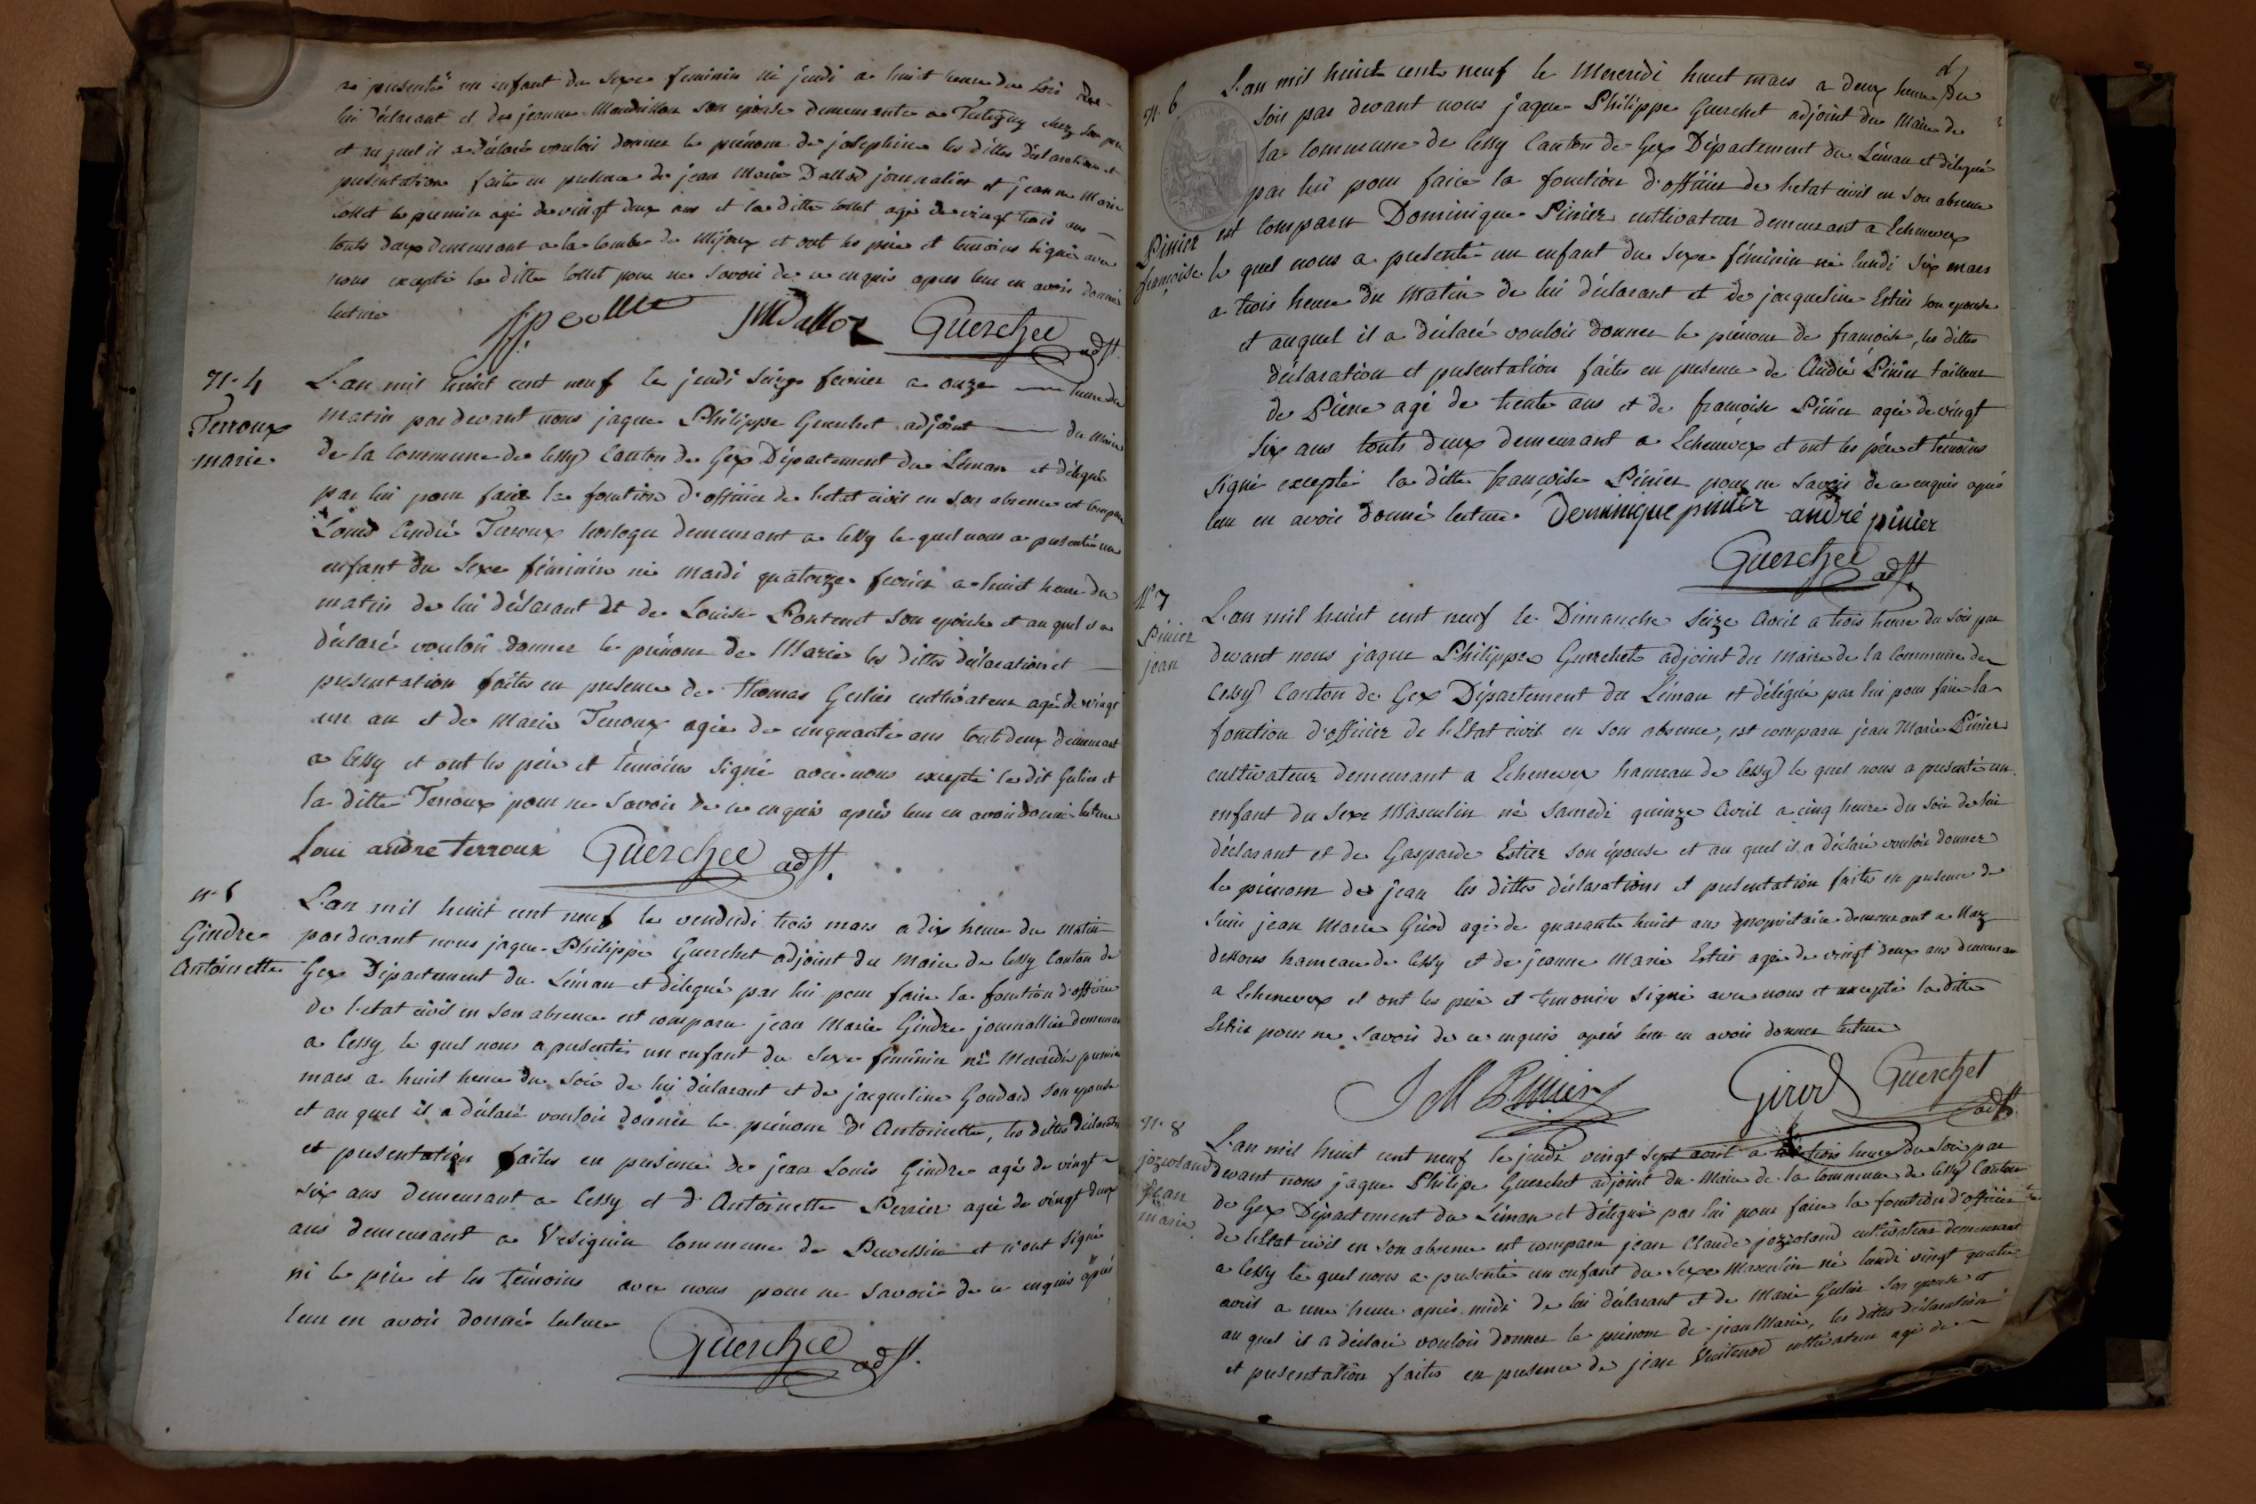 né presenté un enfant du sexe feminin né jeudi a huit heure du soir de
lui déclarant et de jeanne Mandrillon son epouse demeurante a chez son père
et au quel il a déclaré vouloir donner le prénom de josephine les dittes déclaration et
presentation faite en presence de jean Marie Dallod journalier et jeanne Marie
collet le premier agé de vingt deux ans et la ditte collet agée de vingt trois ans
touts deux demeurant a la combe de Mijoux et ont les père et temoins signé avec
nous excepté la ditte collet pour ne savoir de ce enquis apres leur en avoir donné
lecture
JMDalloz Guerchet adjt.
N. 4
Terroux
marie
L'an mil huit cent neuf le jeudi seize fevrier a onze heure du
matin par devant nous jaque Philippe Guerchet adjoint du maire
de la Commune de Cessy Canton de Gex Département du Léman et délegué
par lui pour faire la fonction d'officier de l'etat civil en son absence est comparu
Louis André Terroux horloger demeurant a Cessy le quel nous a presenté un
enfant du sexe féminin né mardi quatorze fevrier a huit heure du
matin de lui déclarant et de Louise Pontenet son epouse et au quel il a
déclaré vouloir donner le prénom de Marie les dittes déclaration et
presentation faites en presence de thomas Gerlier cultivateur agé de vingt
un an et de Marie Terroux agée de cinquante ans tout deux demeurant
a Cessy et ont les père et témoins signé avec nous excepté le dit Gerlier et
la ditte Terroux pour ne savoir de ce enquis après leur en avoir donné lecture
Loui andre terroux Guerchet adjt.
n. 5
Gindre
Antoinette
L'an mil huit cent neuf le vendredi trois mars a dix heure du matin
par devant nous jaque Philippe Guerchet adjoint du Maire de Cessy Canton de
Gex Département du Léman et délegué par lui pour faire la fonction d'officier
de l'etat civil en son absence est comparu jean Marie Gindre journallier demeurant
a Cessy le quel nous a presenté un enfant du sexe féminin né Mercredi premier
mars a huit heure du soir de lui déclarant et de jacqueline Goudard son epouse
et au quel il a déclaré vouloir donner le prénom d'Antoinette, les dittes déclaration
et presentation faites en presence de jean Louis Gindre agé de vingt
six ans demeurant a Cessy et d'Antoinette Perrier agée de vingt deux
ans demeurant a Vesignin Commune de Prevessin et n'ont signé
ni le père et les témoins avec nous pour ne savoir de ce enquis après
leur en avoir donné lecture
Guerchet adjt.
N. 6
Pinier
françoise
L'an mil huit cent neuf le Mercredi huit mars a deux heure du
soir par devant nous jaque Philippe Guerchet adjoint du Maire de
la Commune de Cessy Canton de Gex Département du Léman et délegué
par lui pour faire la fonction d'officier de l'etat civil en son absence
est comparu Dominique Pinier cultivateur demeurant a Echenevex
le quel nous a presenté un enfant du sexe féminin né lundi six mars
a trois heure du matin de lui déclarant et de jacqueline Estier son epouse
et auquel il a déclaré vouloir donner le prénom de françoise, les dittes
déclaration et presentation faites en presence de André Pinier tailleur
de Pierre agé de trente ans et de françoise Pinier agée de vingt
six ans touts deux demeurant a Echenevex et ont les père et témoins
signé excepté la ditte françoise Pinier pour ne savoir de ce enquis après
leur en avoir donné lecture. Dominique pinier andré pinier
Guerchet adjt.
N° 7
Pinier
jean
L'an mil huit cent neuf le Dimanche seize Avril a trois heure du soir par
devant nous jaque Philippe Guerchet adjoint du maire de la Commune de
Cessy Canton de Gex Département du Léman et délégué par lui pour faire la
fonction d'officier de l'Etat civil en son absence, est comparu jean Marie Pinier
cultivateur demeurant a Echenevex hameau de Cessy le quel nous a presenté un
enfant du sexe Masculin né samedi quinze Avril a cinq heure du soir de lui
déclarant et de Gasparde Estier son épouse et au quel il a déclaré vouloir donner
le prénom de jean les dittes déclarations et presentation faite en presence de
jean Marie Girod agé de quarante huit ans propriétaire demeurant a Naz
dessous hameau de Cessy et de jeanne Marie Estier agée de vingt deux ans demeurant
a Echenevex et ont les père et temoin signé avec nous et excepté la ditte
Estier pour ne savoir de ce enquis après leur en avoir donner lecture
J M Pinier Girod Guerchet adjt.
N. 8
joziorand
jean
marie
L'an mil huit cent neuf le jeudi vingt sept avril a trois heure du soir par
devant nous jaque Philipe Guerchet adjoint du Maire de la commune de Cessy Canton
de Gex Département du Léman et délégué par lui pour faire la fonction d'officier
de l'Etat civil en son absence est comparu jean Claude joziorand cultivateur demeurant
a Cessy le quel nous a presenté un enfant du sexe Masculin né lundi vingt quatre
avril a une heure après midi de lui déclarant et de Marie Gerlier son epouse et
au quel il a déclaré vouloir donner le prénom de jean Marie, les dittes déclaration
et presentation faites en presence de jean cultivateur agé de